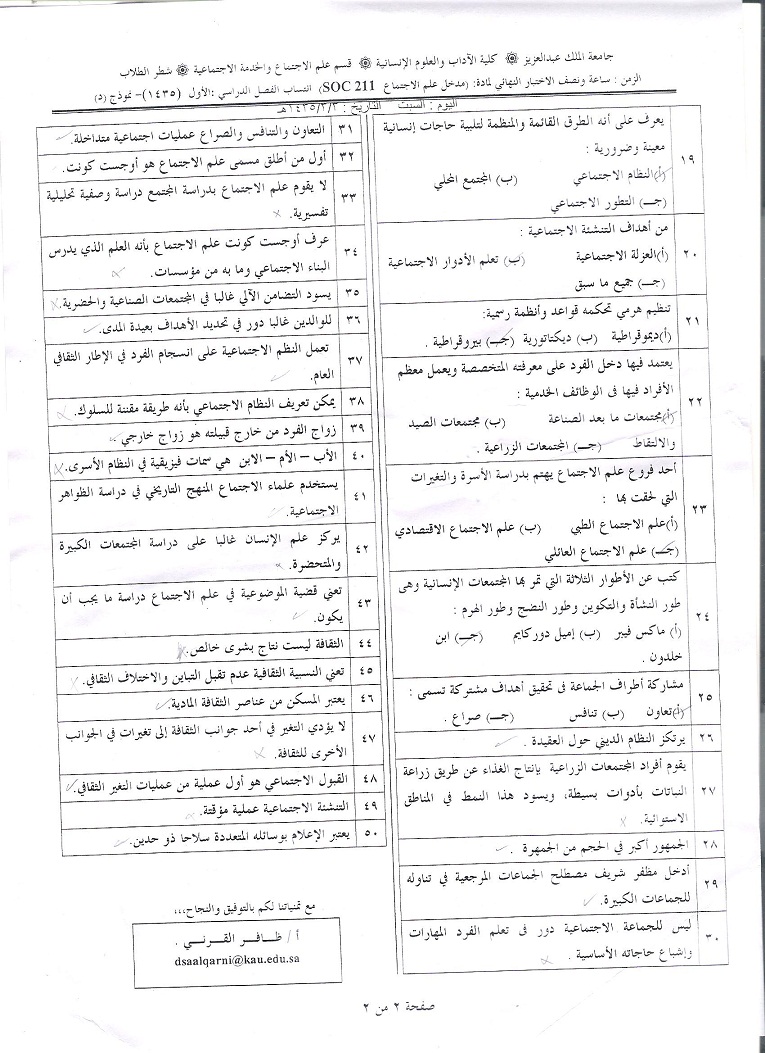 جامعة الملك عبدالعزيز ۞ كلية الآداب والعلوم الإنسانية ۞ قسم علم الاجتماع والخدمة الاجتماعية ۞ شطر الطلاب
الزمن: ساعة ونصف الاختبار النهائي لمادة: (مدخل علم الاجتماع SOC 211) انتساب الفصل الدراسي :الأول (١٤٣٥)- نموذج (د)
اليوم : السبت التاريخ : ١٤٣٥/٢/٢هـ
١٩ يعرف على أنه الطرق القائمة والمنظمة لتلبية حاجات إنسانية
معينة وضرورية :
(أ)النظام الاجتماعي (ب) المجتمع المحلي
(جـ) التطور الاجتماعي
٢٠ من أهداف التنشئة الاجتماعية :
(أ)العزلة الاجتماعية (ب) تعلم الأدوار الاجتماعية
(جـ) جميع ما سبق
٢١ تنظيم هرمي تحكمه قواعد وأنظمة رسمية:
(أ)ديموقراطية (ب) ديكتاتورية (جـ) بيروقراطية .
٢٢ يعتمد فيها دخل الفرد على معرفته المتخصصة ويعمل معظم
الأفراد فيها فى الوظائف الخدمية :
(أ)مجتمعات ما بعد الصناعة (ب) مجتمعات الصيد
والالتقاط (جـ) المجتمعات الزراعية .
٢٣ أحد فروع علم الاجتماع يهتم بدراسة الأسرة والتغيرات
التي لحقت بها :
(أ)علم الاجتماع الطبي (ب) علم الاجتماع الاقتصادي
(جـ) علم الاجتماع العائلي
٢٤ كتب عن الأطوار الثلاثة التي تمر بها المجتمعات الإنسانية وهى
طور النشأة والتكوين وطور النضج وطور الهرم :
(أ) ماكس فيبر (ب) إميل دوركايم (جـ) ابن
خلدون .
٢٥ مشاركة أطراف الجماعة فى تحقيق أهداف مشتركة تسمى :
(أ)تعاون (ب) تنافس (جـ) صراع .
٢٦ يرتكز النظام الديني حول العقيدة .
٢٧ يقوم أفراد المجتمعات الزراعية بإنتاج الغذاء عن طريق زراعة
النباتات بأدوات بسيطة، ويسود هذا النمط في المناطق
الاستوائية.
٢٨ الجمهور أكبر في الحجم من الجمهرة .
٢٩ أدخل مظفر شريف مصطلح الجماعات المرجعية في تناوله
للجماعات الكبيرة.
٣٠ ليس للجماعة الاجتماعية دور فى تعلم الفرد المهارات
وإشباع حاجاته الأساسية .
٣١ التعاون والتنافس والصراع عمليات اجتماعية متداخلة.
٣٢ أول من أطلق مسمى علم الاجتماع هو أوجست كونت.
٣٣ لا يقوم علم الاجتماع بدراسة المجتمع دراسة وصفية تحليلية
تفسيرية.
٣٤ عرف أوجست كونت علم الاجتماع بأنه العلم الذي يدرس
البناء الاجتماعي وما به من مؤسسات.
٣٥ يسود التضامن الآلي غالبا في المجتمعات الصناعية والحضرية.
٣٦ للوالدين غالبا دور في تحديد الأهداف بعيدة المدى.
٣٧ تعمل النظم الاجتماعية على انسجام الفرد في الإطار الثقافي
العام.
٣٨ يمكن تعريف النظام الاجتماعي بأنه طريقة مقننة للسلوك.
٣٩ زواج الفرد من خارج قبيلته هو زواج خارجي
٤٠ الأب – الأم – الابن هي سمات فيزيقية في النظام الأسرى.
٤١ يستخدم علماء الاجتماع المنهج التاريخي في دراسة الظواهر
الاجتماعية.
٤٢ يركز علم الإنسان غالبا على دراسة المجتمعات الكبيرة
والمتحضرة.
٤٣ تعني قضية الموضوعية في علم الاجتماع دراسة ما يجب أن
يكون.
٤٤ الثقافة ليست نتاج بشرى خالص.
٤٥ تعني النسبية الثقافية عدم تقبل التباين والاختلاف الثقافي.
٤٦ يعتبر المسكن من عناصر الثقافة المادية.
٤٧ لا يؤدي التغير في أحد جوانب الثقافة إلى تغيرات في الجوانب
الأخرى للثقافة.
٤٨ القبول الاجتماعي هو أول عملية من عمليات التغير الثقافي.
٤٩ التنشئة الاجتماعية عملية مؤقتة.
٥٠ يعتبر الإعلام بوسائله المتعددة سلاحا ذو حدين.
مع تمنياتنا لكم بالتوفيق والنجاح،،،
أ / ظـافـر القـرنـي .
dsaalqarni@kau.edu.sa
صفحة ٢ من ٢